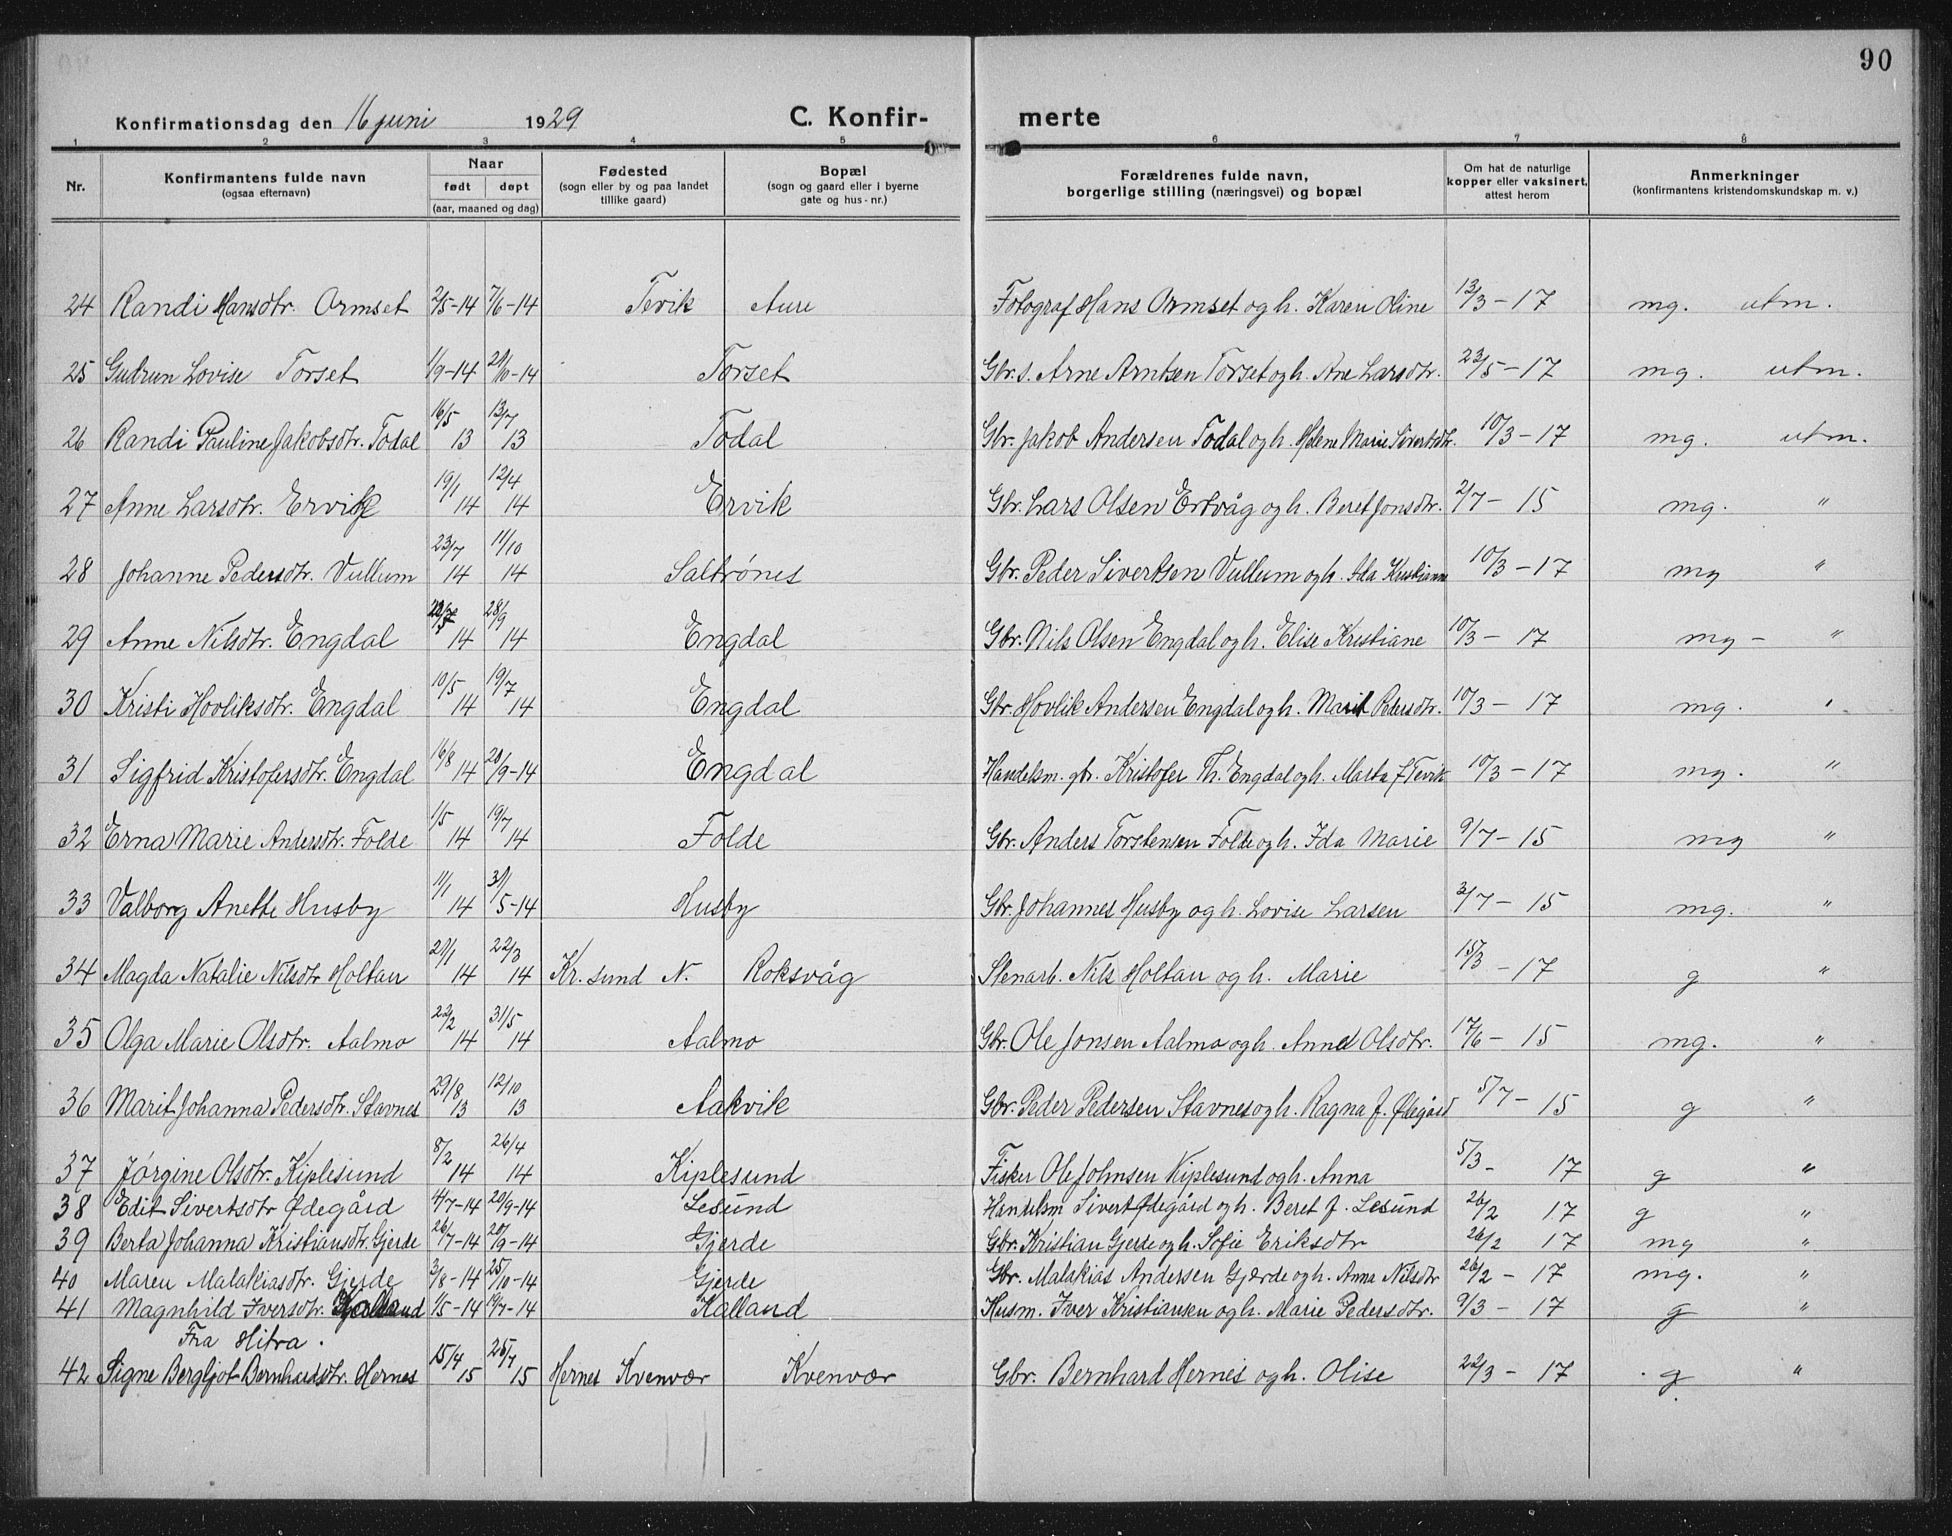 90
Konfirmationsdag den 16 juni 1929 C. Konfirmerte
1 2 3 4 5 6 7 8
Nr. Konfirmantens fulde navn (ogsaa efternavn) Naar født døpt (aar, maaned og dag) Fødested (sogn eller by og paa landet tillike gaard) Bopæl (sogn og gaard eller i byerne gate og hus-nr.) Forældrenes fulde navn, borgerlige stilling (næringsvei) og bopæl Om hat de naturlige kopper eller vaksinert, attest herom Anmerkninger (konfirmantens kristendomskundskap m. v.)
24 Randi Hansdtr. Ormset 2/5-14 7/6-14 Tevik Aure Fotograf Hans Ormset og h. Karen Oline 13/3-17 mg. utm.
25 Gudrun Lovise Torset 1/9-14 /10-14 Torset Gbr.s. Arne Arntsen Torset og h. Ane Larsdtr. 23/5-17 mg. utm.
26 Randi Pauline Jakobsdtr. Todal 16/5 13 13/7 13 Todal Gbr. Jakob Andersen Todal og h. Helene Marie Sivertsdtr. 10/3-17 mg. utm.
27 Anne Larsdtr. Ervik 19/1 14 12/4 14 Ervik Gbr. Lars Olsen Ertvåg og h. Beret Jonsdtr. 2/7-15 mg. "
28 Johanne Pedersdtr. Vullum 23/7 14 11/10 14 Saltrönes Gbr. Peder Sivertsen Vullum og h. Ida Kristianne 10/3-17 mg "
29 Anne Nilsdtr. Engdal 14 28/9 14 Engdal Gbr. Nils Olsen Engdal og h. Elise Kristiane 10/3-17 mg - "
30 Kristi Hovliksdtr. Engdal 10/5 14 19/7 14 Engdal Gbr. Hovlik Andersen Engdal og h. Marit Pedersdtr. 10/3-17 mg. "
31 Sigfrid Kristofersdtr. Engdal 16/8 14 20/9-14 Engdal Handelsm. gbr. Kristofer Th. Engdal og h. Marta f. Tevik 10/3-17 mg. "
32 Erna Marie Andersdtr. Folde 1/5 14 19/7 14 Folde Gbr. Anders Torstensen Folde og h. Ida Marie 9/7-15 mg "
33 Valborg Anette Husby 11/1 14 31/5-14 Husby Gbr. Johannes Husby og h. Lovise Larsen 3/7-15 mg. "
34 Magda Natalie Nilsdtr Holtan 21/1 14 22/3 14 Kr.sund N. Roksvåg Stenarb. Nils Holtan og h. Marie 15/3-17 g "
35 Olga Marie Olsdtr. Aalmo 22/2 14 31/5 14 Aalmo Gbr. Ole Jonsen Aalmo og h. Anne Olsdtr. 17/6-15 mg. "
36 Marit Johanna Pedersdtr. Stavnes 29/8 13 12/10 13 Aakvik Gbr. Peder Pedersen Stavnes og h. Ragna f. Ødegård 5/7-15 g "
37 Jørgine Olsdtr. Kiplesund 8/2 14 26/4 14 Kiplesund Fisker Ole Johnsen Kiplesund og h. Anna 5/3-17 g "
38 Edit Sivertsdtr Ødegård 4/7-14 20/9-14 Lesund Handelsm Sivert Ødegård og h. Beret f. Lesund 26/2 17 g "
39 Berta Johanna Kristiansdtr. Gjerde 26/7-14 20/9-14 Gjerde Gbr. Kristian Gjerde og h. Sofie Eriksdtr 26/2 17 mg "
40 Maren Malakiasdtr. Gjerde 3/8-14 25/10-14 Gjerde Gbr. Malakias Andersen Gjerde og h. Anna Nilsdtr 26/2-17 mg. "
41 Magnhild Iversdtr. Kalland 1/5-14 19/7-14 Kalland Husm. Iver Kristiansen og h. Marie Pedersdtr. 9/3-17 g "
Fra Hitra.
42 Signe Bergljot Bernhardsdtr. Hernes 15/4 15 25/7 15 Hernes Kvenvær Kvenvær Gbr. Bernhard Hernes og h. Olise 22/3-17 g "